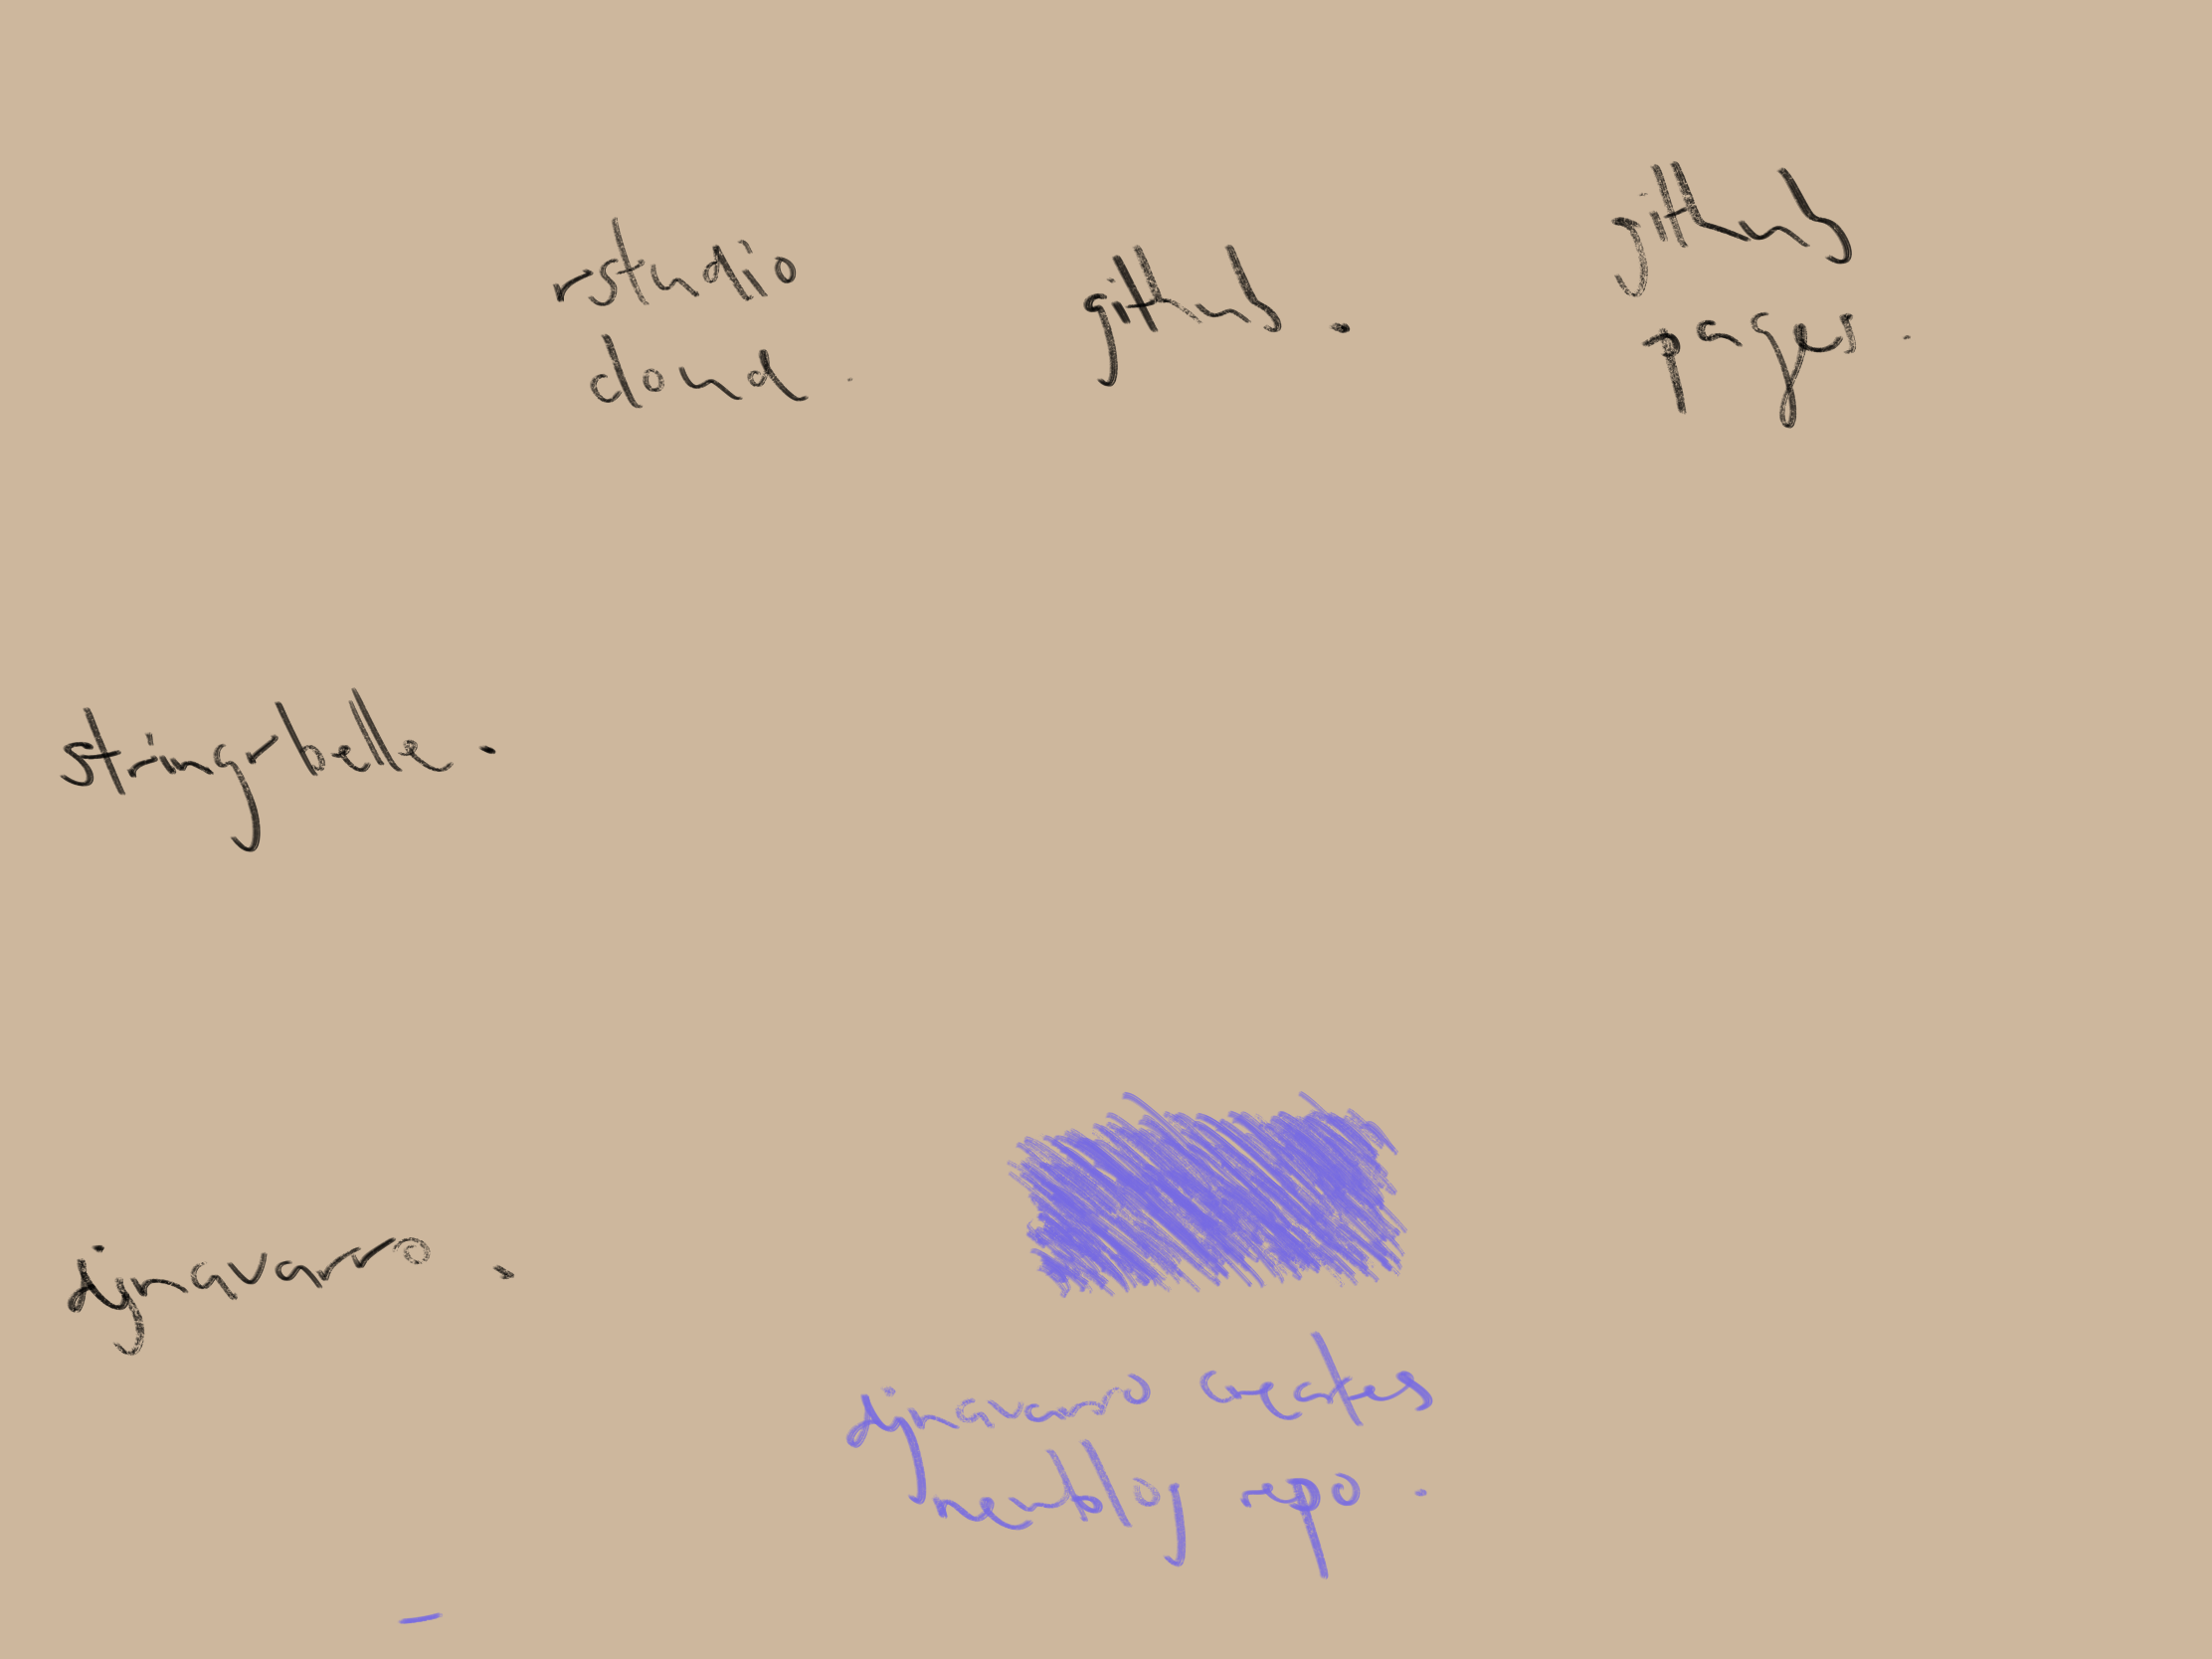 rstudio
cloud.
github.
github
pages.
string-belle.
djnavarro.
djnavarro creates
newblog repo.